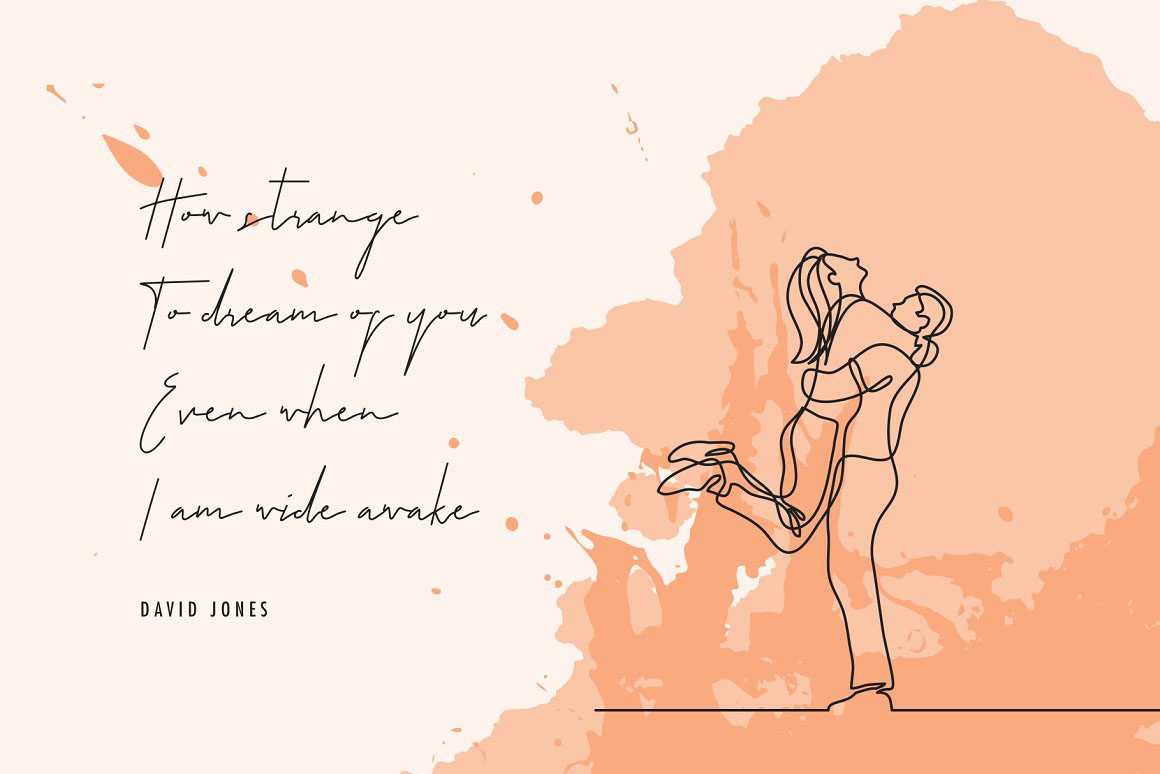 How strange
To dream of you
Even when
I am wide awake
DAVID JONES